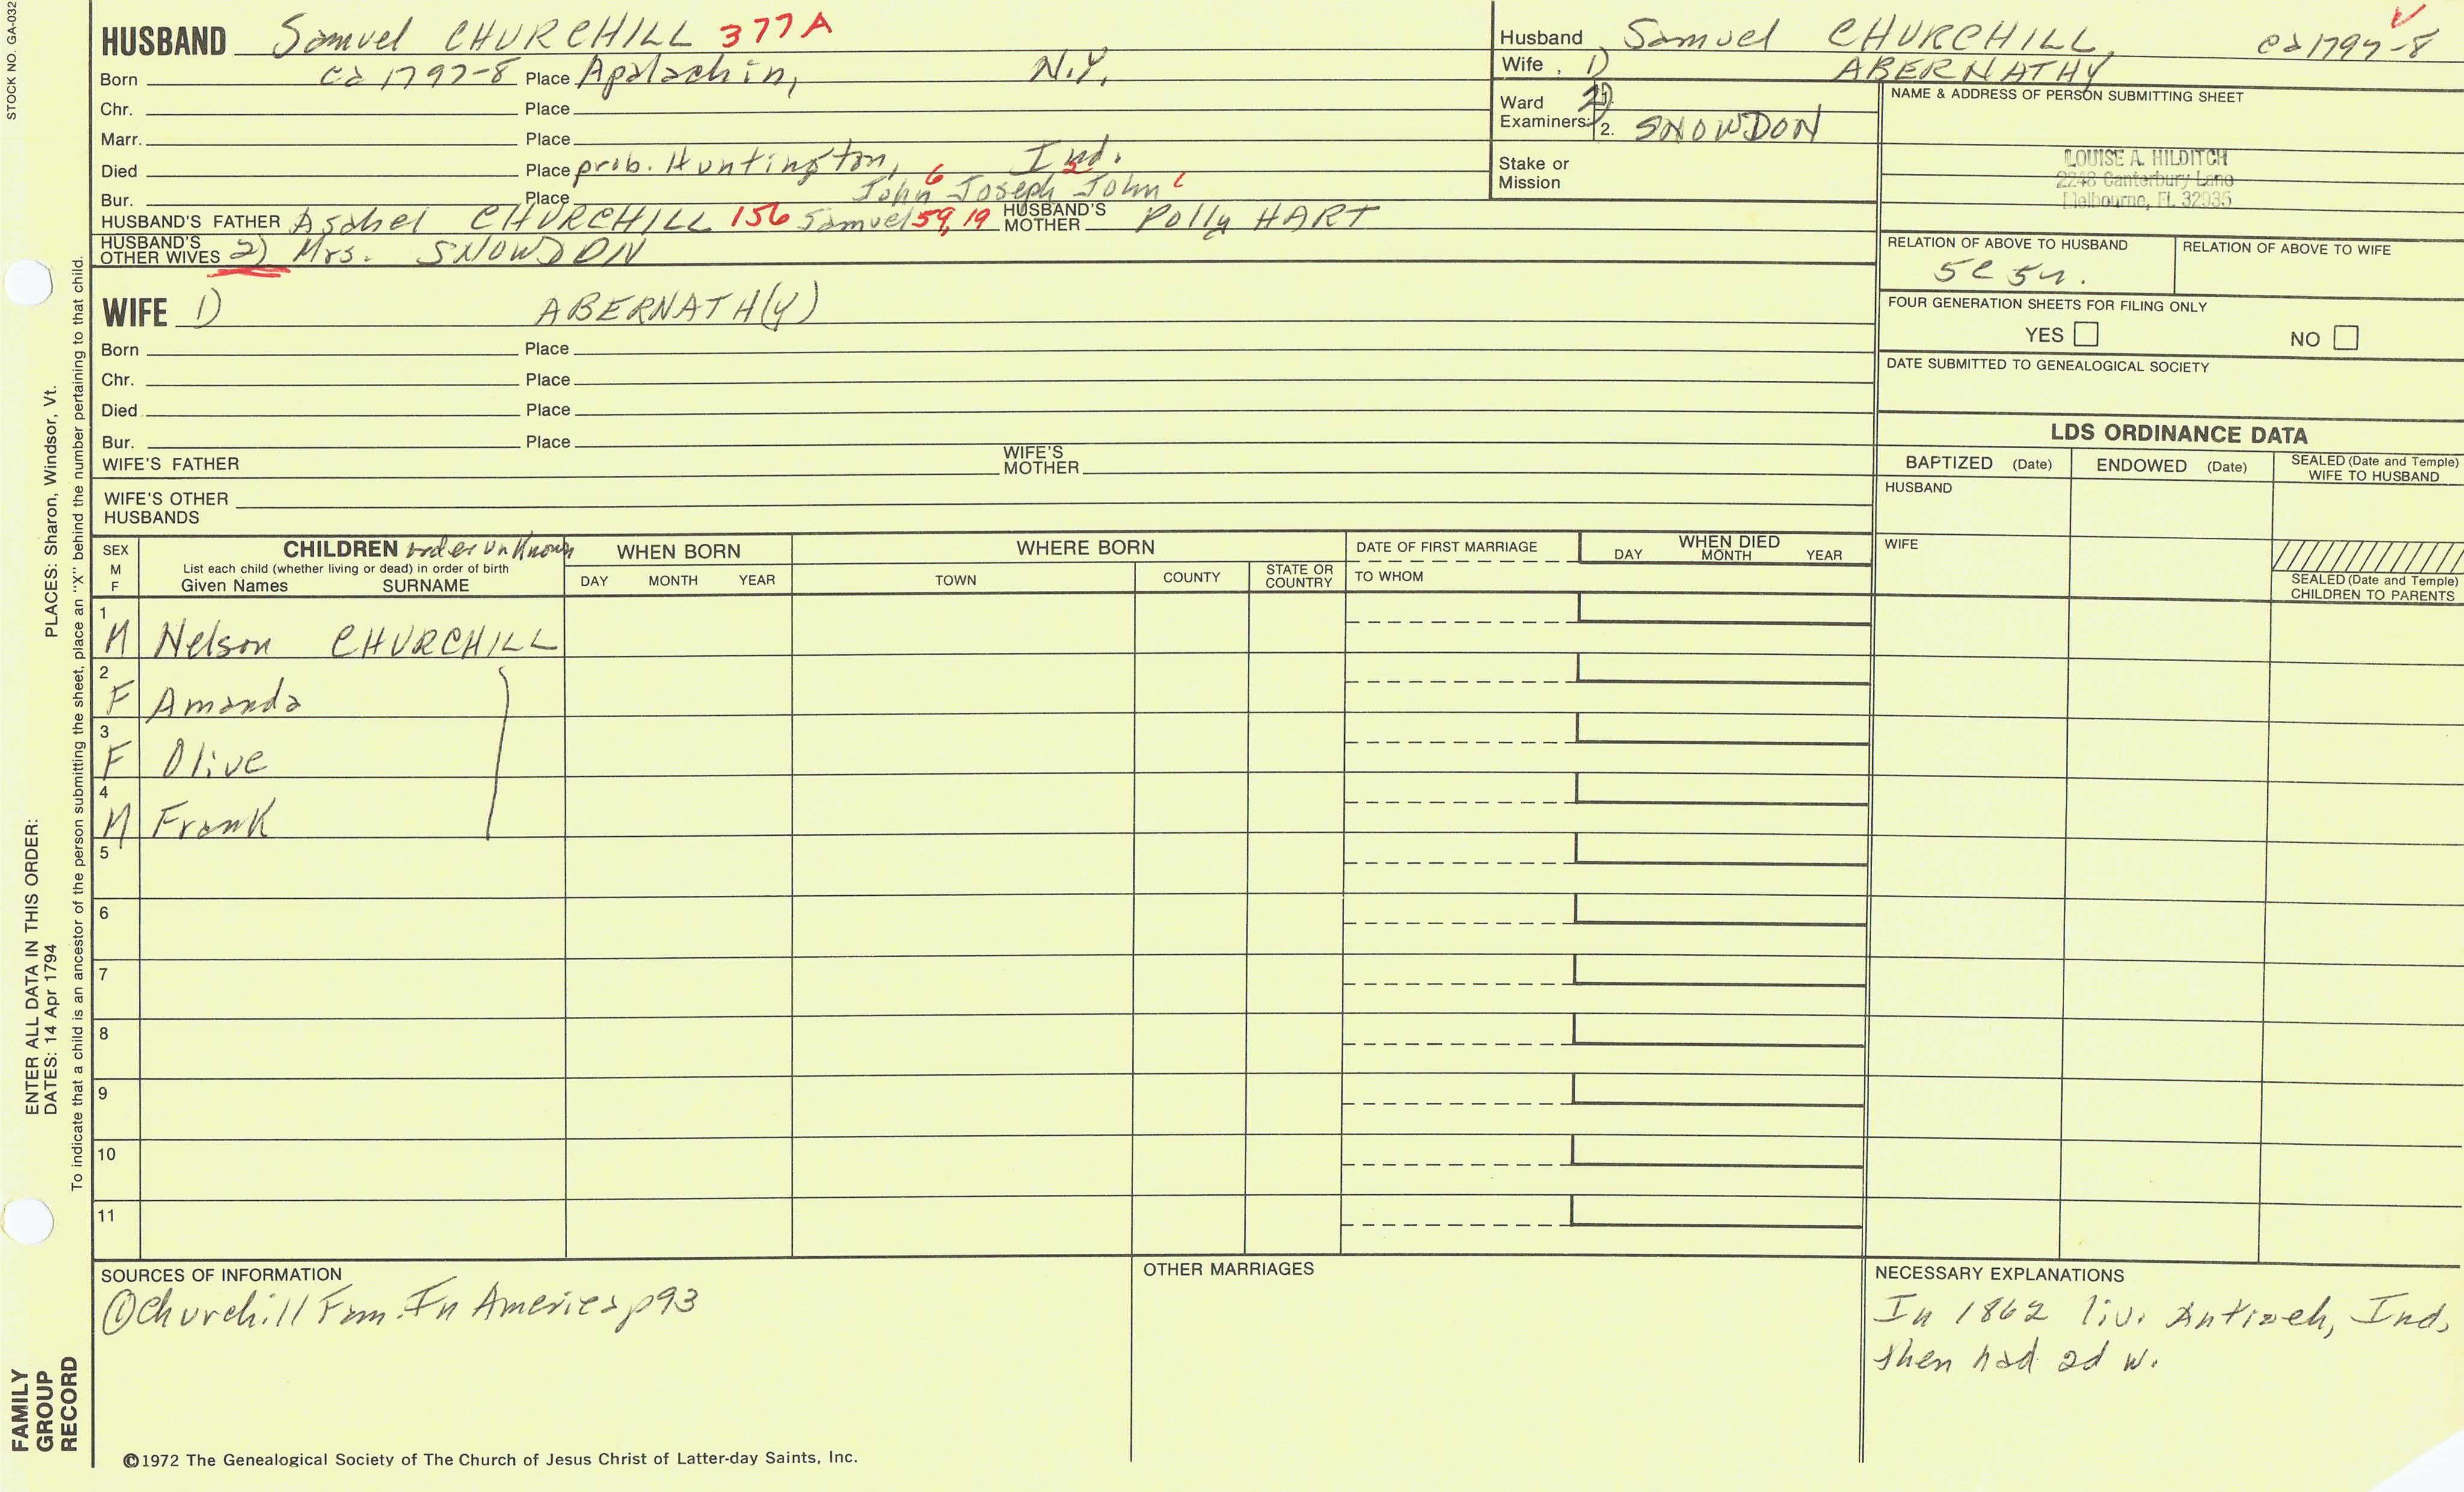 STOCK NO. GA-032
HUSBAND Samuel CHURCHILL 377A
Born ca 1797-8 Place Apalachin, N.Y.
Chr. Place
Marr. Place
Died Place prob. Huntington, Ind.
Bur. Place John 6 Joseph 2 John
HUSBAND'S FATHER Asahel CHURCHILL 156 Samuel 59, 19 HUSBAND'S MOTHER Polly HART
HUSBAND'S OTHER WIVES 2) Mrs. SNOWDON
WIFE 1) ABERNATH(Y)
Born Place
Chr. Place
Died Place
Bur. Place
WIFE'S FATHER WIFE'S MOTHER
WIFE'S OTHER HUSBANDS
Husband Samuel CHURCHILL, ca 1797-8
Wife 1) ABERNATHY
Ward
Examiners: 2. SNOWDON
Stake or
Mission
NAME & ADDRESS OF PERSON SUBMITTING SHEET
LOUISE A. HILDITCH
2248 Canterbury Lane
Melbourne, FL 32935
RELATION OF ABOVE TO HUSBAND RELATION OF ABOVE TO WIFE
5c 5r.
FOUR GENERATION SHEETS FOR FILING ONLY
YES NO
DATE SUBMITTED TO GENEALOGICAL SOCIETY
LDS ORDINANCE DATA
BAPTIZED (Date) ENDOWED (Date) SEALED (Date and Temple) WIFE TO HUSBAND
HUSBAND
WIFE
SEALED (Date and Temple)
CHILDREN TO PARENTS
SEX M F
CHILDREN order unknown
List each child (whether living or dead) in order of birth
Given Names SURNAME
WHEN BORN
DAY MONTH YEAR
WHERE BORN
TOWN COUNTY STATE OR COUNTRY
DATE OF FIRST MARRIAGE
TO WHOM
WHEN DIED
DAY MONTH YEAR
1 M Nelson CHURCHILL
2 F Amanda
3 F Olive
4 M Frank
5
6
7
8
9
10
11
SOURCES OF INFORMATION
① Churchill Fam. In America p93
OTHER MARRIAGES
NECESSARY EXPLANATIONS
In 1862 liv. Antioch, Ind,
then had 2d w.
PLACES: Sharon, Windsor, Vt.
To indicate that a child is an ancestor of the person submitting the sheet, place an "X" behind the number pertaining to that child.
ENTER ALL DATA IN THIS ORDER:
DATES: 14 Apr 1794
FAMILY
GROUP
RECORD
©1972 The Genealogical Society of The Church of Jesus Christ of Latter-day Saints, Inc.